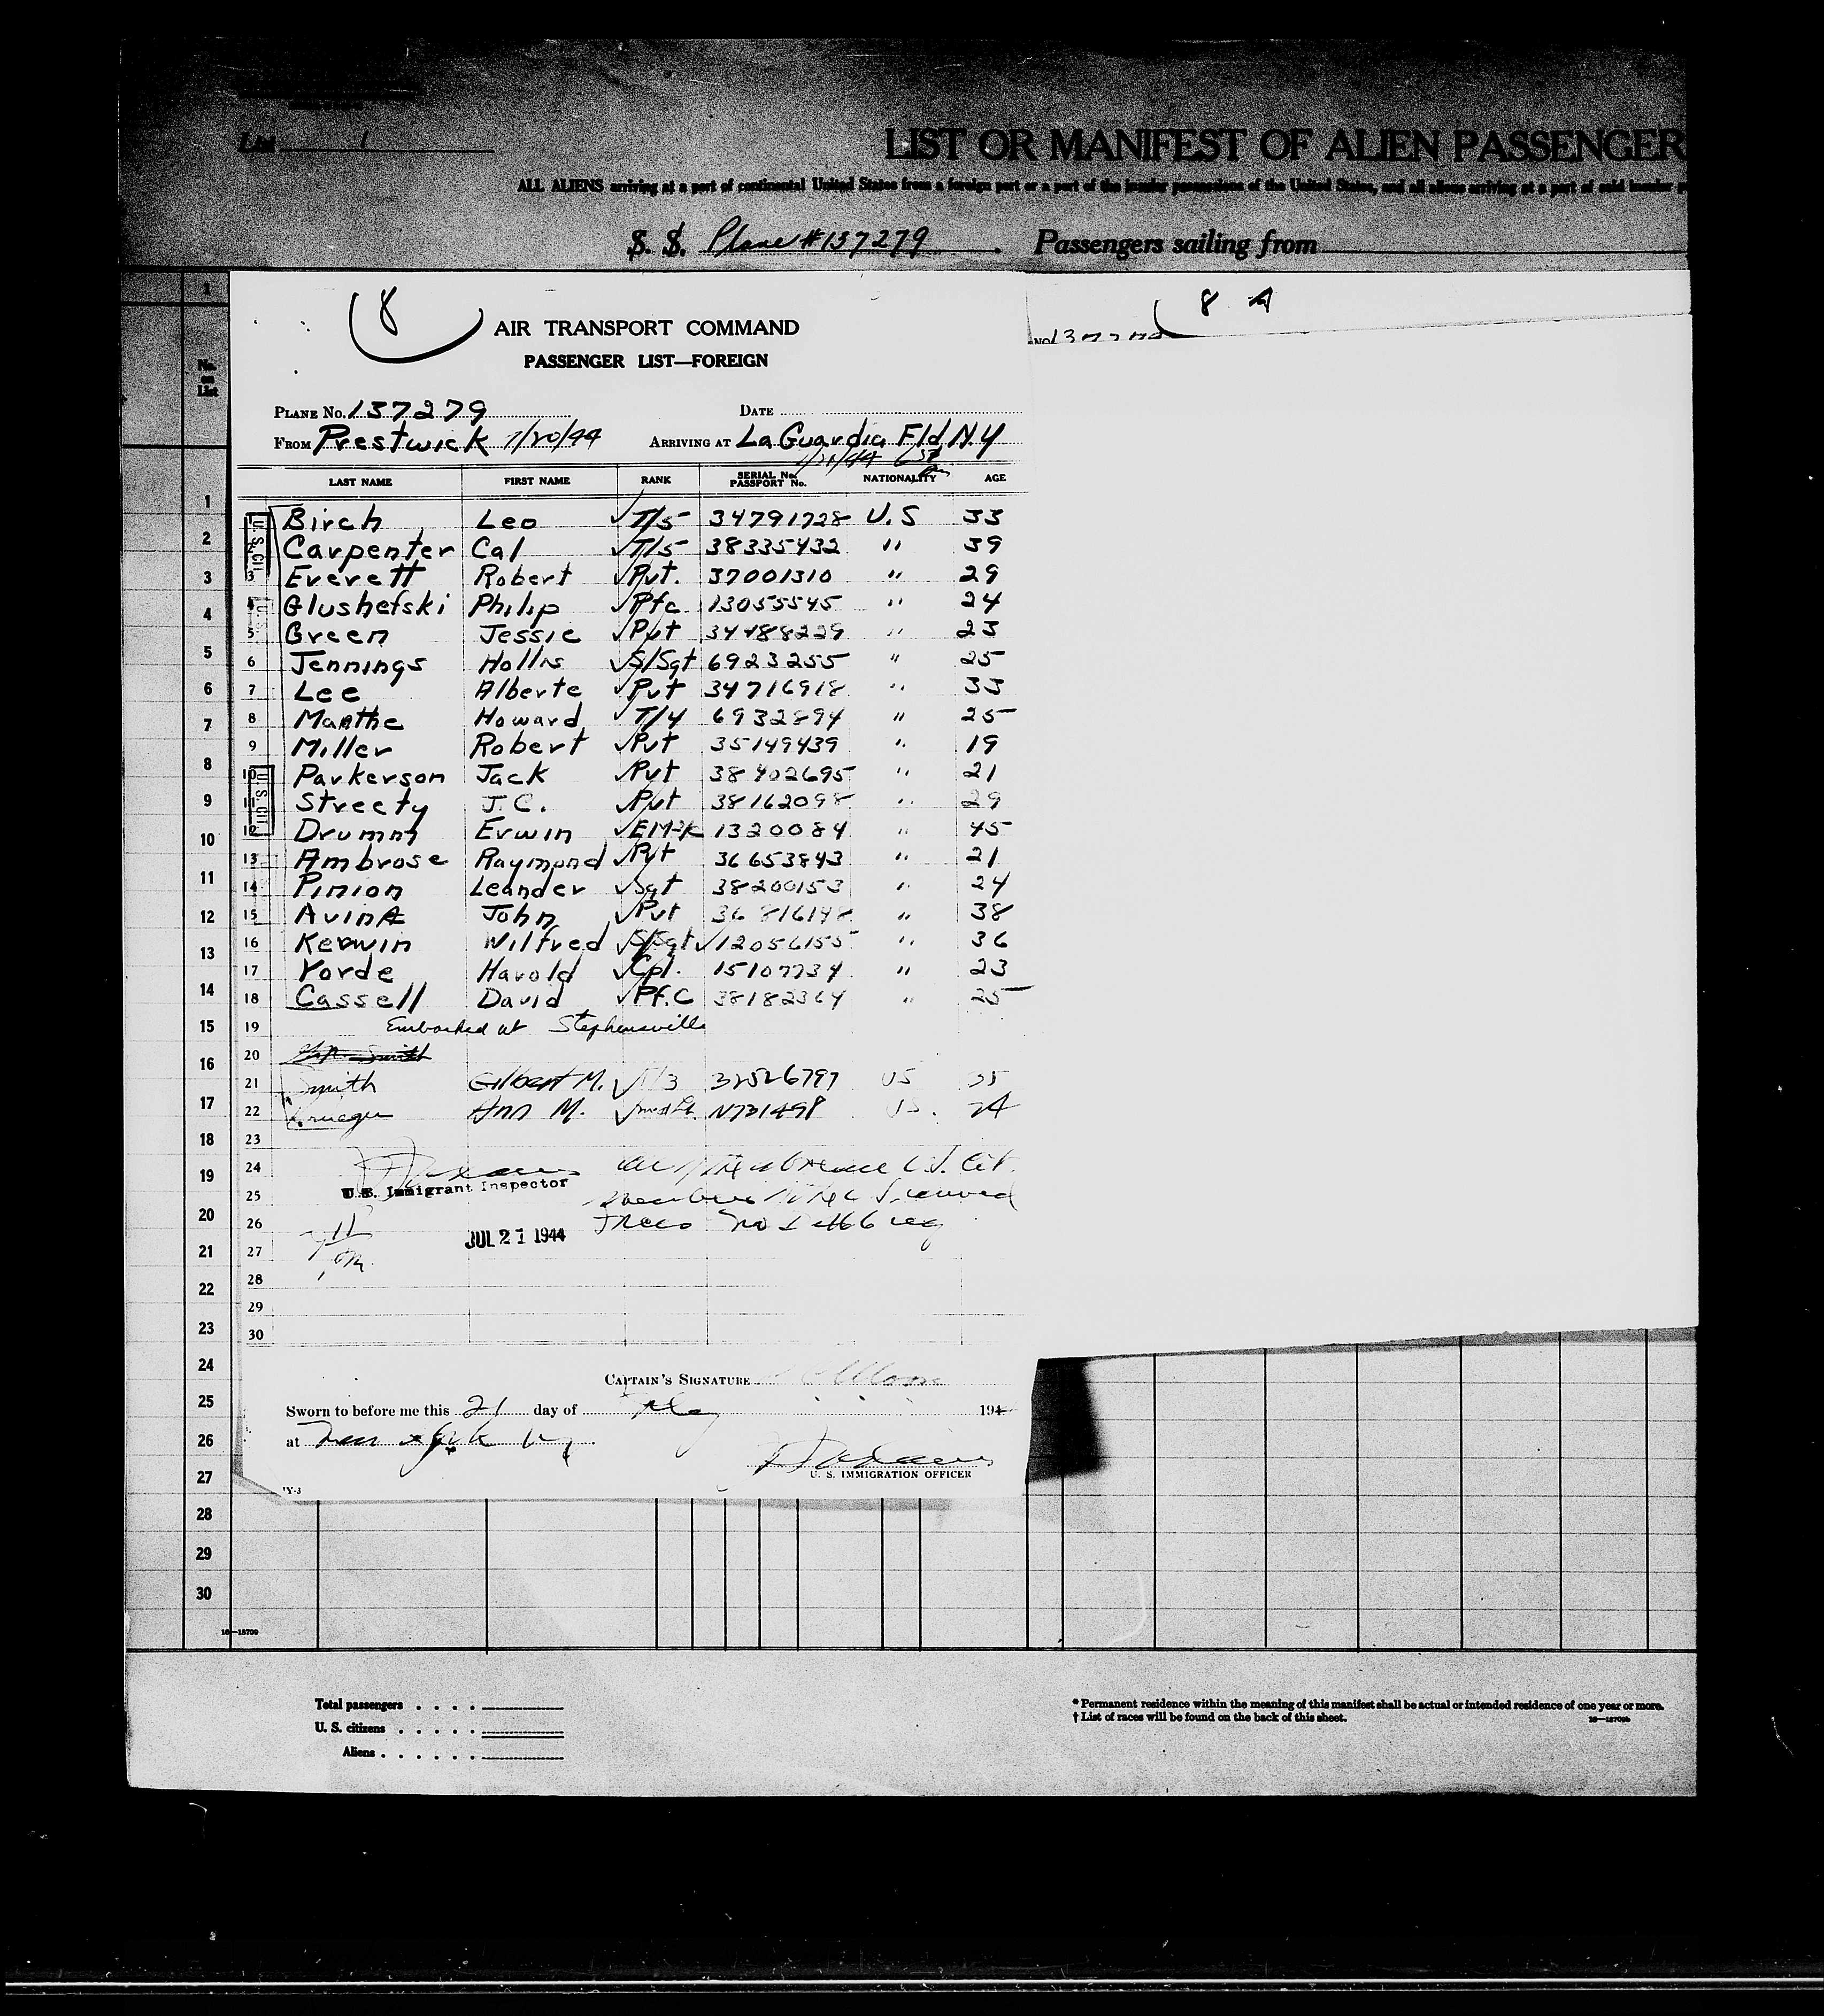 List 1
LIST OR MANIFEST OF ALIEN PASSENGER
ALL ALIENS arriving at a port of continental United States from a foreign port or a port of the insular possessions of the United States, and all aliens arriving at a port of said insular
S. S. Plane #137279 Passengers sailing from
8
8 A
AIR TRANSPORT COMMAND
PASSENGER LIST—FOREIGN
PLANE No. 137279 DATE
FROM Prestwick 7/20/44 ARRIVING AT La Guardia Fld N.Y
No. on List
LAST NAME FIRST NAME RANK SERIAL No. PASSPORT No. NATIONALITY AGE
1 Birch Leo T/5 34791728 U.S 33
2 Carpenter Cal T/5 38335432 " 39
3 Everett Robert Pvt. 37001310 " 29
4 Glushefski Philip Pfc 13055545 " 24
5 Green Jessie Pvt 34488229 " 23
6 Jennings Hollis S/Sgt 6923255 " 25
7 Lee Alberte Pvt 34716918 " 33
8 Manthe Howard T/4 6932894 " 25
9 Miller Robert Pvt 35149439 " 19
10 Parkerson Jack Pvt 38402695 " 21
11 Streety J.C. Pvt 38162098 " 29
12 Drumm Erwin 1320084 " 45
13 Ambrose Raymond Pvt 36653843 " 21
14 Pinion Leander Sgt 38200153 " 24
15 Avina John Pvt 36816148 " 38
16 Kerwin Wilfred S/Sgt 12056155 " 36
17 Yorde Harold Cpl. 15107734 " 23
18 Cassell David Pf.C 38182364 " 25
19 Embarked at Stephensville
20 Smith
21 Smith Gilbert M. 32526797 US
22 Krueger Ann M. N731498 US. 24
23
24
U.S. Immigrant Inspector
25
26
JUL 21 1944
27
28
29
30
CAPTAIN'S SIGNATURE
Sworn to before me this 21 day of 194
at New York
U. S. IMMIGRATION OFFICER
16—18709
Total passengers
U. S. citizens
Aliens
* Permanent residence within the meaning of this manifest shall be actual or intended residence of one year or more.
† List of races will be found on the back of this sheet.